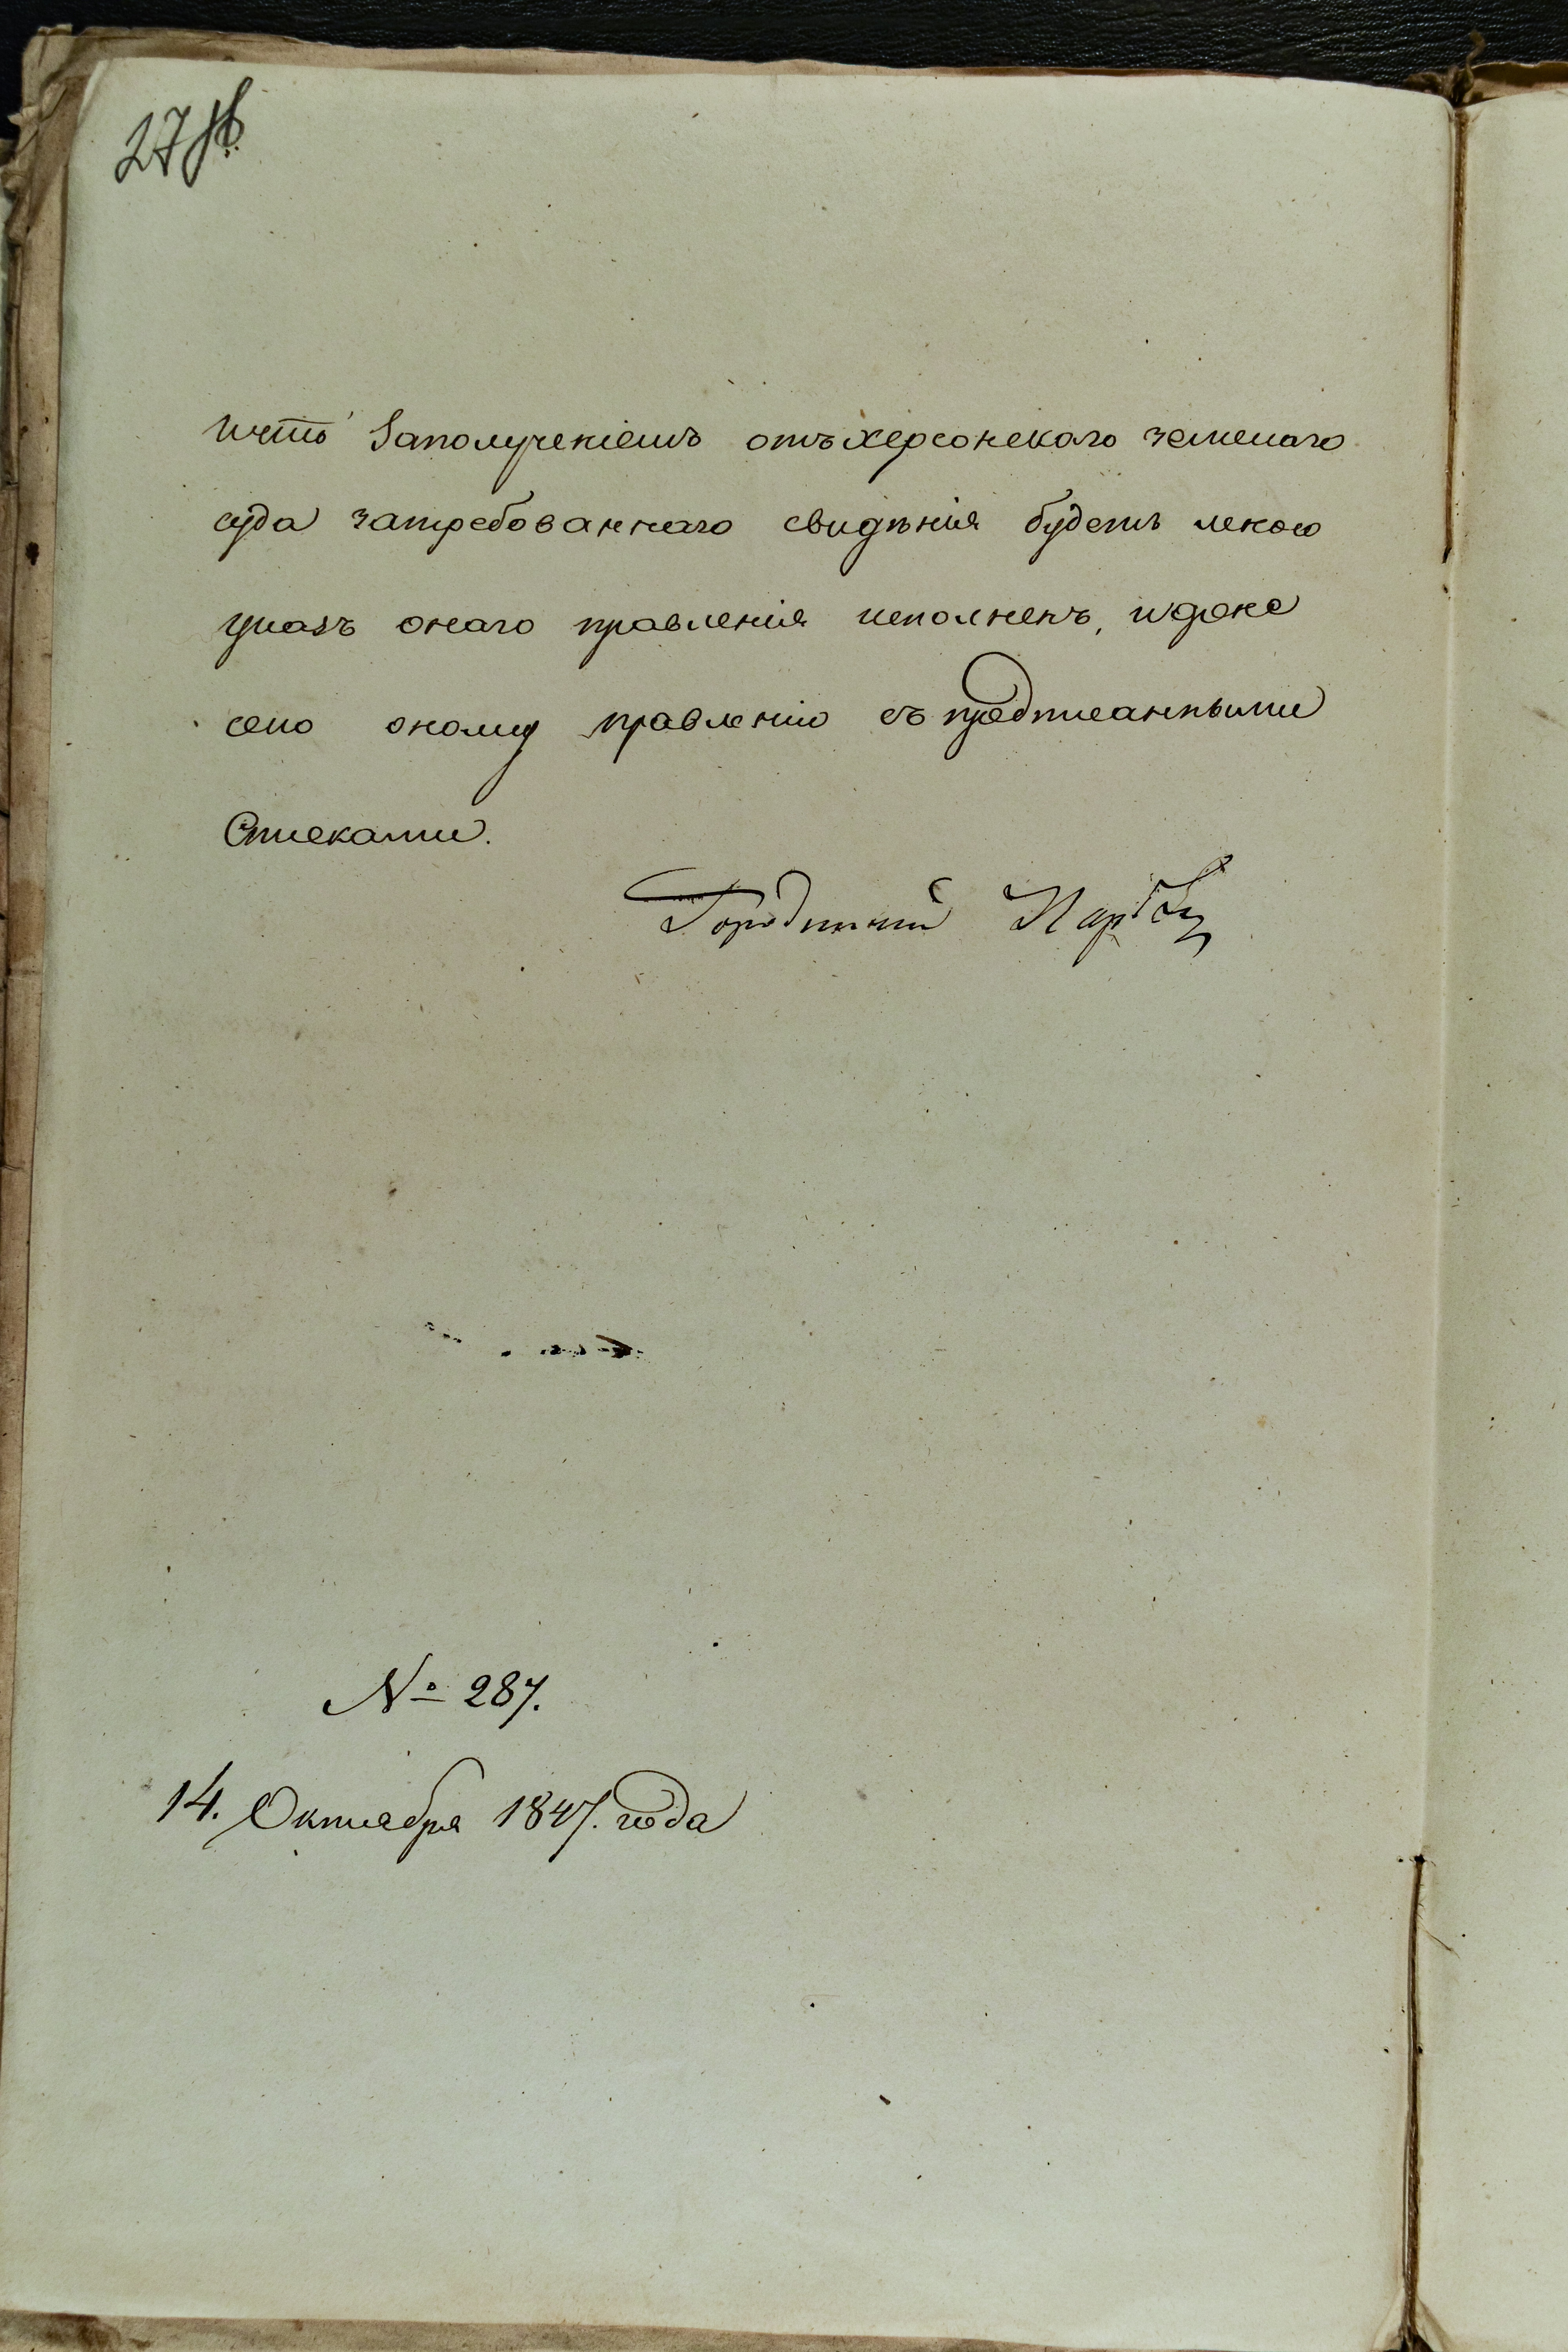 27 об
ичто заполученіемъ отъ херсонскаго земскаго
суда затребованнаго свидѣнія будетъ мною
указъ онаго правленія исполненъ, идоне
сено оному правленію съ предписанными
Списками.
Городничій
№ 287.
14. Октября 1847. года